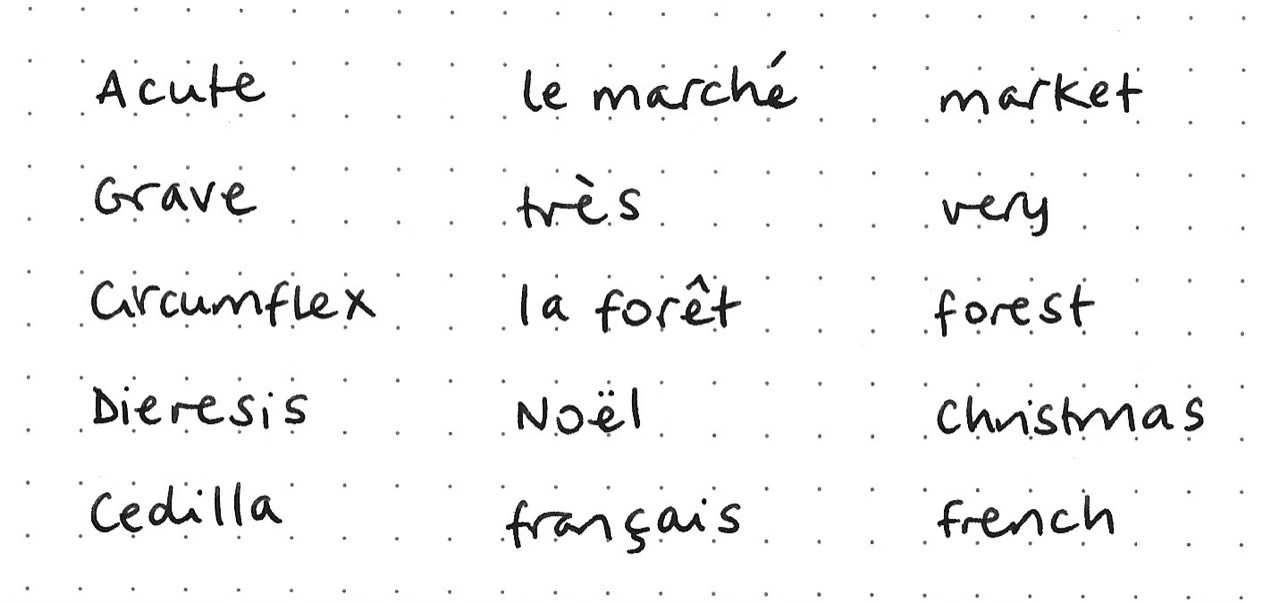 Acute le marché market
Grave très very
Circumflex la forêt forest
Dieresis Noël Christmas
Cedilla français french